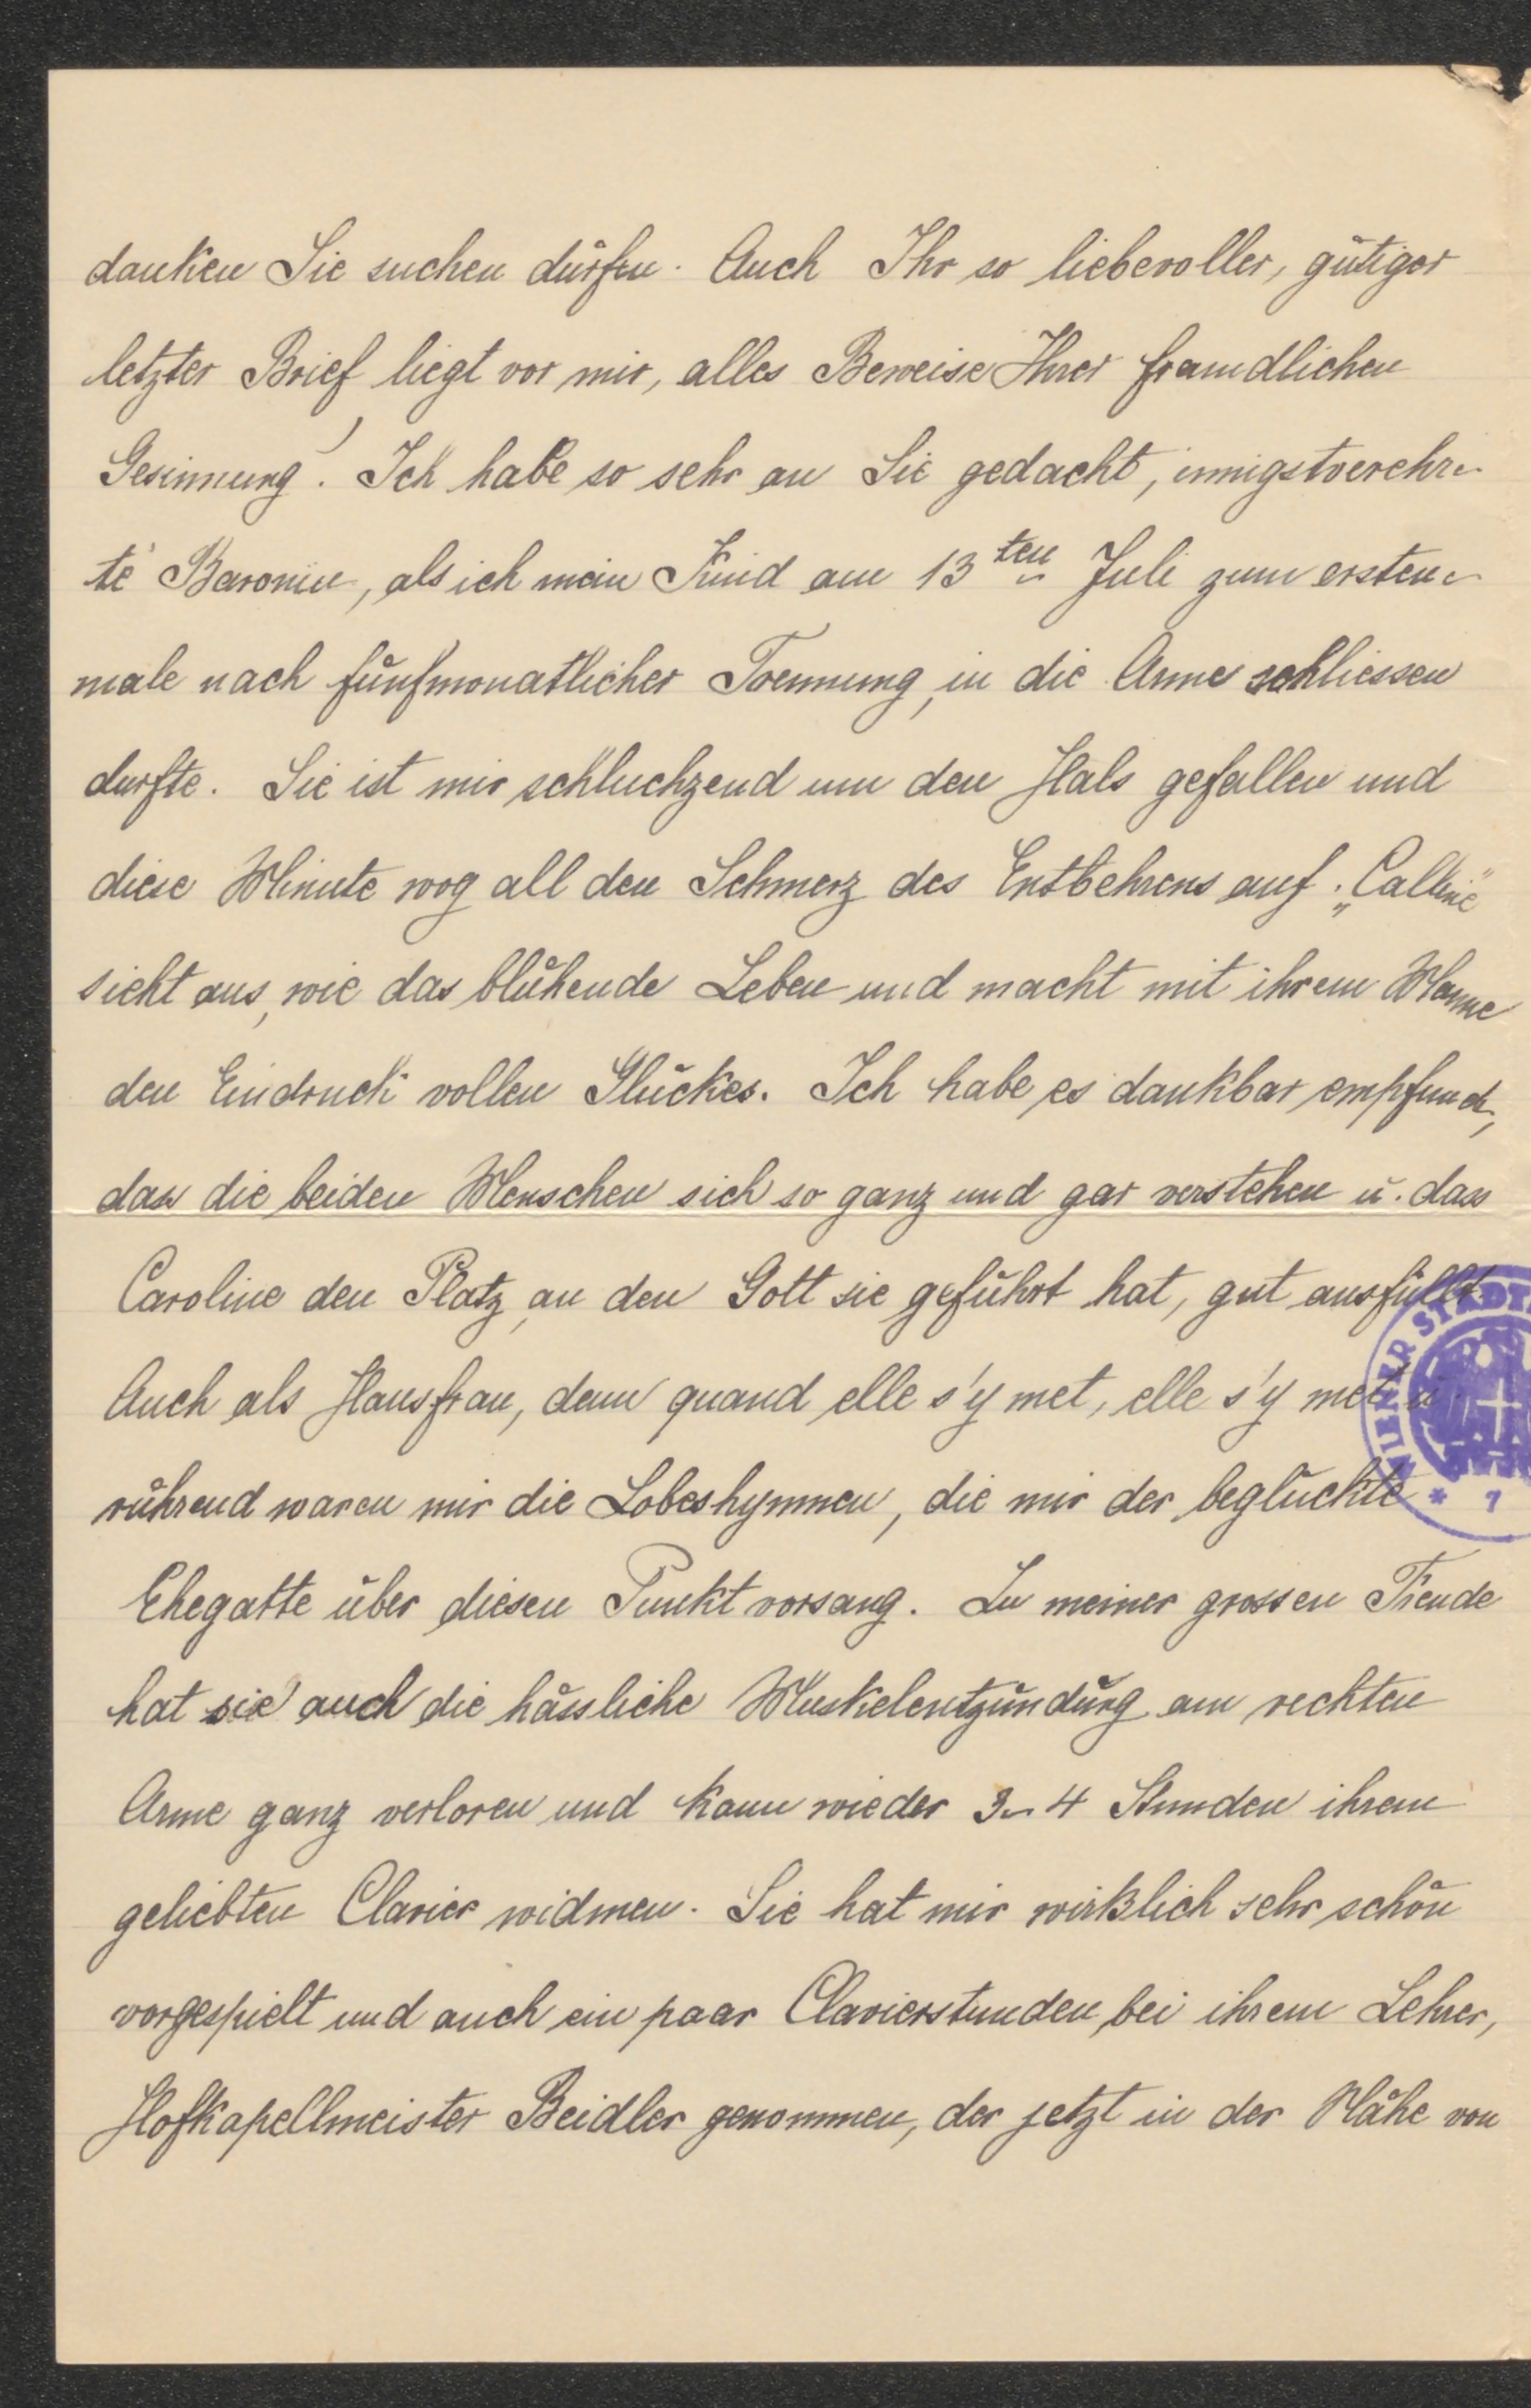 danken Sie suchen dürfen. Auch Ihr so liebevoller, gütiger
letzter Brief liegt vor mir, alles Beweise Ihrer freundlichen
Gesinnung! Ich habe so sehr an Sie gedacht, innigstverehr-
te Baronin, als ich mein Kind am 13ten Juli zum ersten-
male nach fünfmonatlicher Trennung, in die Arme schliessen
durfte. Sie ist mir schluchzend um den Hals gefallen und
diese Minute wog all den Schmerz des Entbehrens auf.
sieht aus, wie das blühende Leben und macht mit ihrem Manne
den Eindruck vollen Glückes. Ich habe es dankbar empfund.,
dass die beiden Menschen sich so ganz und gar verstehen u. dass
Caroline den Platz, an den Gott sie geführt hat, gut ausfüllt.
Auch als Hausfrau, denn quand elle s'y met, elle s'y met u.
rührend waren mir die Lobeshymnen, die mir der beglückte
Ehegatte über diesen Punkt vorsang. Zu meiner grossen Freude
hat sie auch die hässliche Muskelentzündung am rechten
Arme ganz verloren und kann wieder 3-4 Stunden ihrem
geliebten Clavier widmen. Sie hat mir wirklich sehr schön
vorgespielt und auch ein paar Clavierstunden, bei ihrem Lehrer,
Hofkapellmeister Beidler genommen, der jetzt in der Nähe von
WIENER STADT
* 1